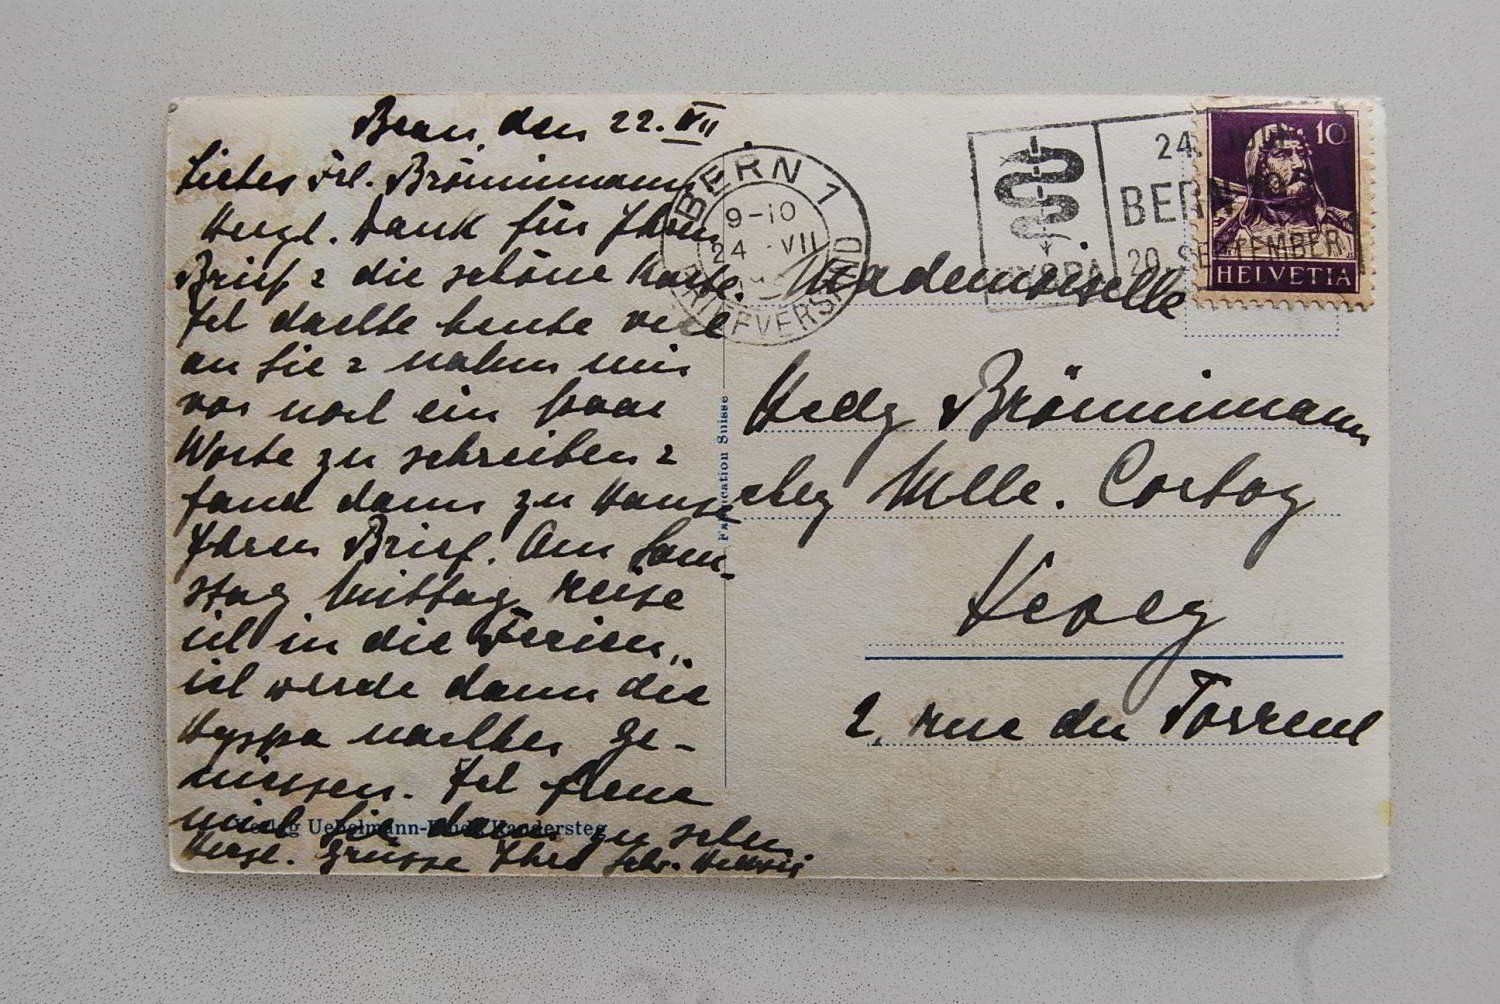 Bern, den 22. VII
Liebes Frl. Brönnimann,
Herzl. Dank für Ihren
Brief & die schöne Karte.
Ich dachte heute viel
an Sie & nahm mir
vor noch ein paar
Worte zu schreiben &
fand dann zu Hause
Ihren Brief. Am Sam-
stag Mittag reise
ich in die Ferien,
ich werde dann die
Hyspa nachher ge-
niessen. Ich freue
mich Sie dann zu sehen
Herzl. Grüsse Ihre Schw.
Verlag Uebelmann- Kandersteg
Fabrication Suisse
BERN 1
9-10
24 VII
BRIEFVERSAND
HYSPA
24. JULI
BERN
20. SEPTEMBER
10
HELVETIA
Mademoiselle
Helly Brönnimann
chez Mlle. Cortay
Vevey
2, rue du Torrent